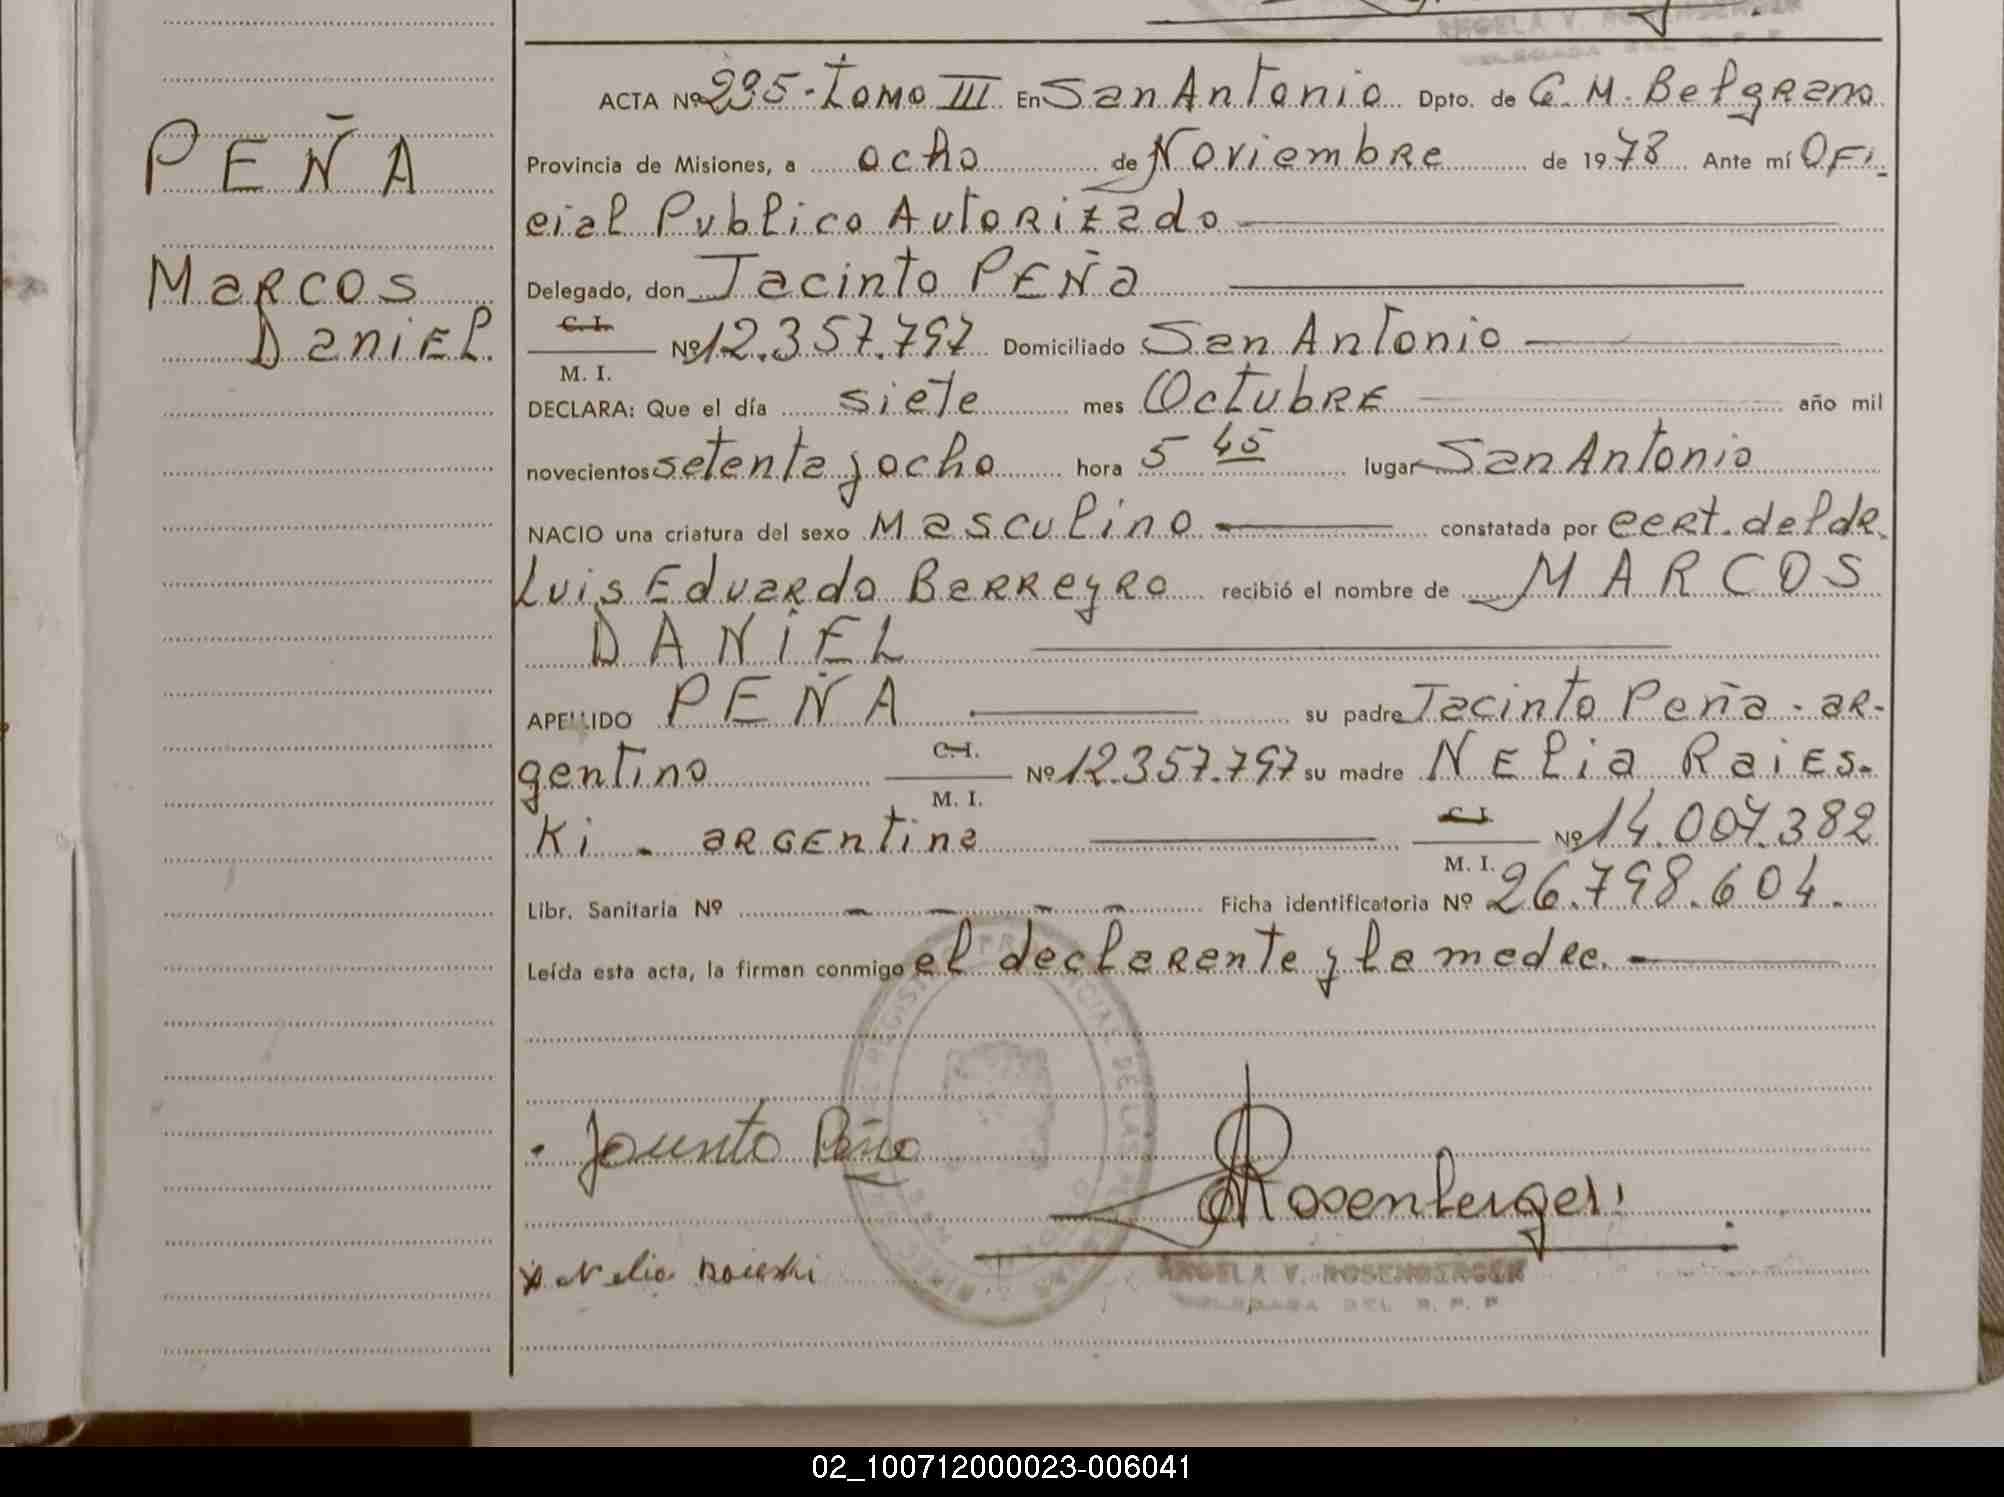 ANGELA V. ROSENBERGER
DELEGADA DEL R. P. P.
ACTA Nº 295 - Tomo III En San Antonio Dpto. de G. M. Belgrano
Provincia de Misiones, a ocho de Noviembre de 1978 Ante mí OFi-
cial Publico Autorizado
Delegado, don Jacinto PEÑa
C. I.
Nº 12.357.797 Domiciliado San Antonio
M. I.
DECLARA: Que el día siete mes Octubre año mil
novecientos setenta y ocho hora 5 45 lugar San Antonio
NACIO una criatura del sexo Masculino constatada por cert. del dr.
Luis Eduardo Barreyro recibió el nombre de MARCOS
DANiEL
APELLIDO PEÑA su padre Jacinto Peña - ar-
gentino C. I. Nº 12.357.797 su madre NElia Raies-
M. I.
Ki - argentina C. I. Nº 14.007.382
M. I.
Libr. Sanitaria Nº - - - - Ficha identificatoria Nº 26.798.604.
Leída esta acta, la firman conmigo el declarante y la madre.
PEÑA
Marcos
DaniEl.
Jacinto Peña
Rosenberger
x Nelia Raieski
ANGELA V. ROSENBERGER
DELEGADA DEL R. P. P.
02_100712000023-006041